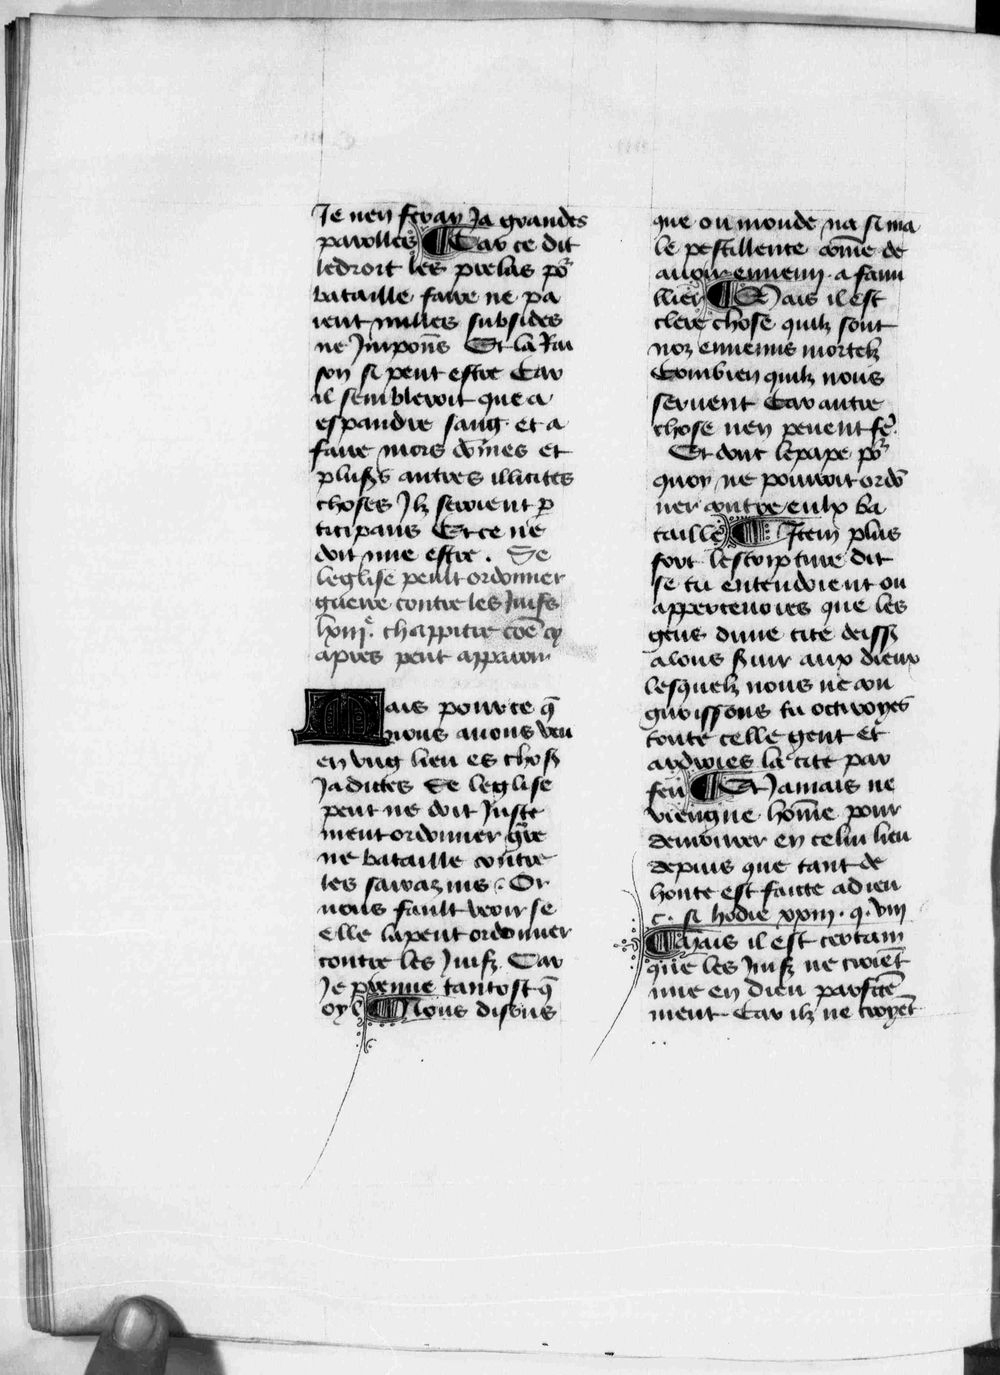 Je nen feray Ja grandes
parolles ¶ Car ce dit
ledroit les prelas po᷑
bataille faire ne pa
ient nulles subsides
ne Jmpoñs Et la Rai
son si peut estre Car
il sembleroit que a
espandre sang et a
faire mors dom̄es et
plus᷑s autres illicites
choses Jlz seroient p̲
ticipans Et ce ne
doit mie estre . Se
leglise peult ordonner
guerre contre les Juifs
lxiiiᵉ. chappitre coē cy
apres peut apparoir
Mais pource q̄
nous auons veu
en vng lieu es chos᷑
Ja dictes se leglise
peut ne doit Juste
ment ordonner gr̄re
ne bataille contre
les sarazins . Or
nous fault veoir se
elle lapeut ordonner
contre les Juifz Car
Je preuue tantost q̄
oyl ¶ Nous disons
que ou monde na si ma
le pestillente com̄e de
auoir ennemi a fami
llier ¶ Mais il est
clere chose quilz sont
noz ennemis mortelz
Combien quilz nous
seruent Car autre
chose nen peuent fe᷑
Et dont lepape po᷑
quoy ne pourroit ordō
ner contre eulx ba
taille ¶ Item plus
fort lescripture dit
se tu entendoient ou
apperceuoies que les
gens dune cite deiss᷑
alons s᷑uir aux dieux
lesquelz nous ne con
gnoissons tu octroyes
toute celle gent et
ardroies la cite par
feu ¶ Et Jamais ne
viengne hom̄e pour
demourer en celui lieu
depuis que tant de
honte est faicte a dieu
c. si hodie xxiii. q. viii
¶ Mais il est certain
que les Juifz ne croiēt
mie en dieu parfcte
ment Car ilz ne croyēt